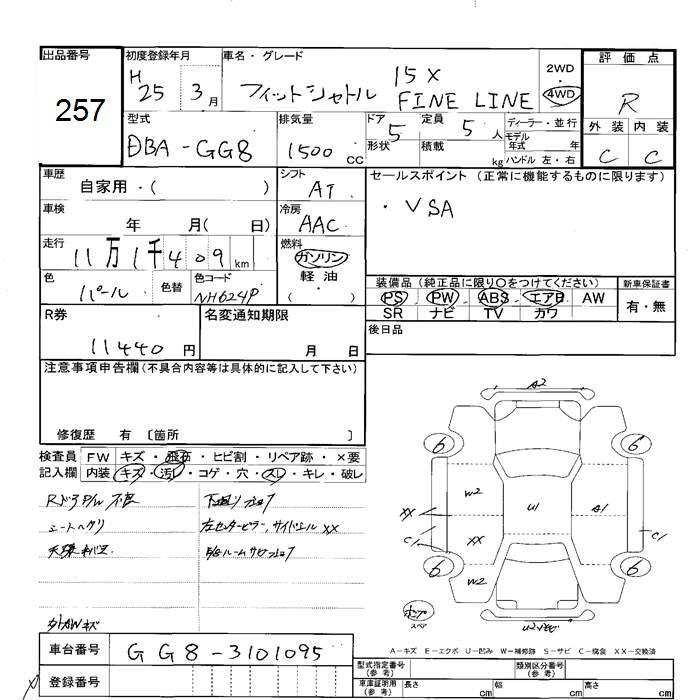 出品番号 初度登録年月 車名・グレード 評価点
257
H 25 3月
フィットシャトル 15X FINE LINE
2WD・4WD
R
型式 排気量 ドア 定員 ディーラー・並行
DBA-GG8 1500 CC 5 5 人
形状 積載 kg モデル年式 年 ハンドル 左・右
外装 内装
C C
車歴 自家用・( )
シフト AT
セールスポイント (正常に機能するものに限ります)
・VSA
車検 年 月( 日)
冷房 AAC
走行 11万1千409km
燃料 ガソリン・軽油 ( )
色 パール 色替 色コード NH624P
装備品(純正品に限り○をつけてください) 新車保証書
PS・PW・ABS・エアB・AW
SR・ナビ・TV・カワ
有・無
R券 11440円
名変通知期限 月 日
後日品
注意事項申告欄(不具合内容等は具体的に記入して下さい)
修復歴 有 〔箇所 〕
検査員記入欄
FW キズ・飛石・ヒビ割・リペア跡・×要
内装 キズ・汚レ・コゲ・穴・スレ・キレ・破レ
シートヘタリ
左センターピラー,サイドシル XX
外AWキズ
A2
6 6
W2 U1 A1
XX XX
C1 C1
W2
6 6
スペア
A-キズ E-エクボ U-凹み W-補修跡 S-サビ C-腐食 XX-交換済
車台番号 GG8-3101095
登録番号
型式指定番号(参考) 類別区分番号(参考)
車庫証明用(参考) 長さ cm 幅 cm 高さ cm